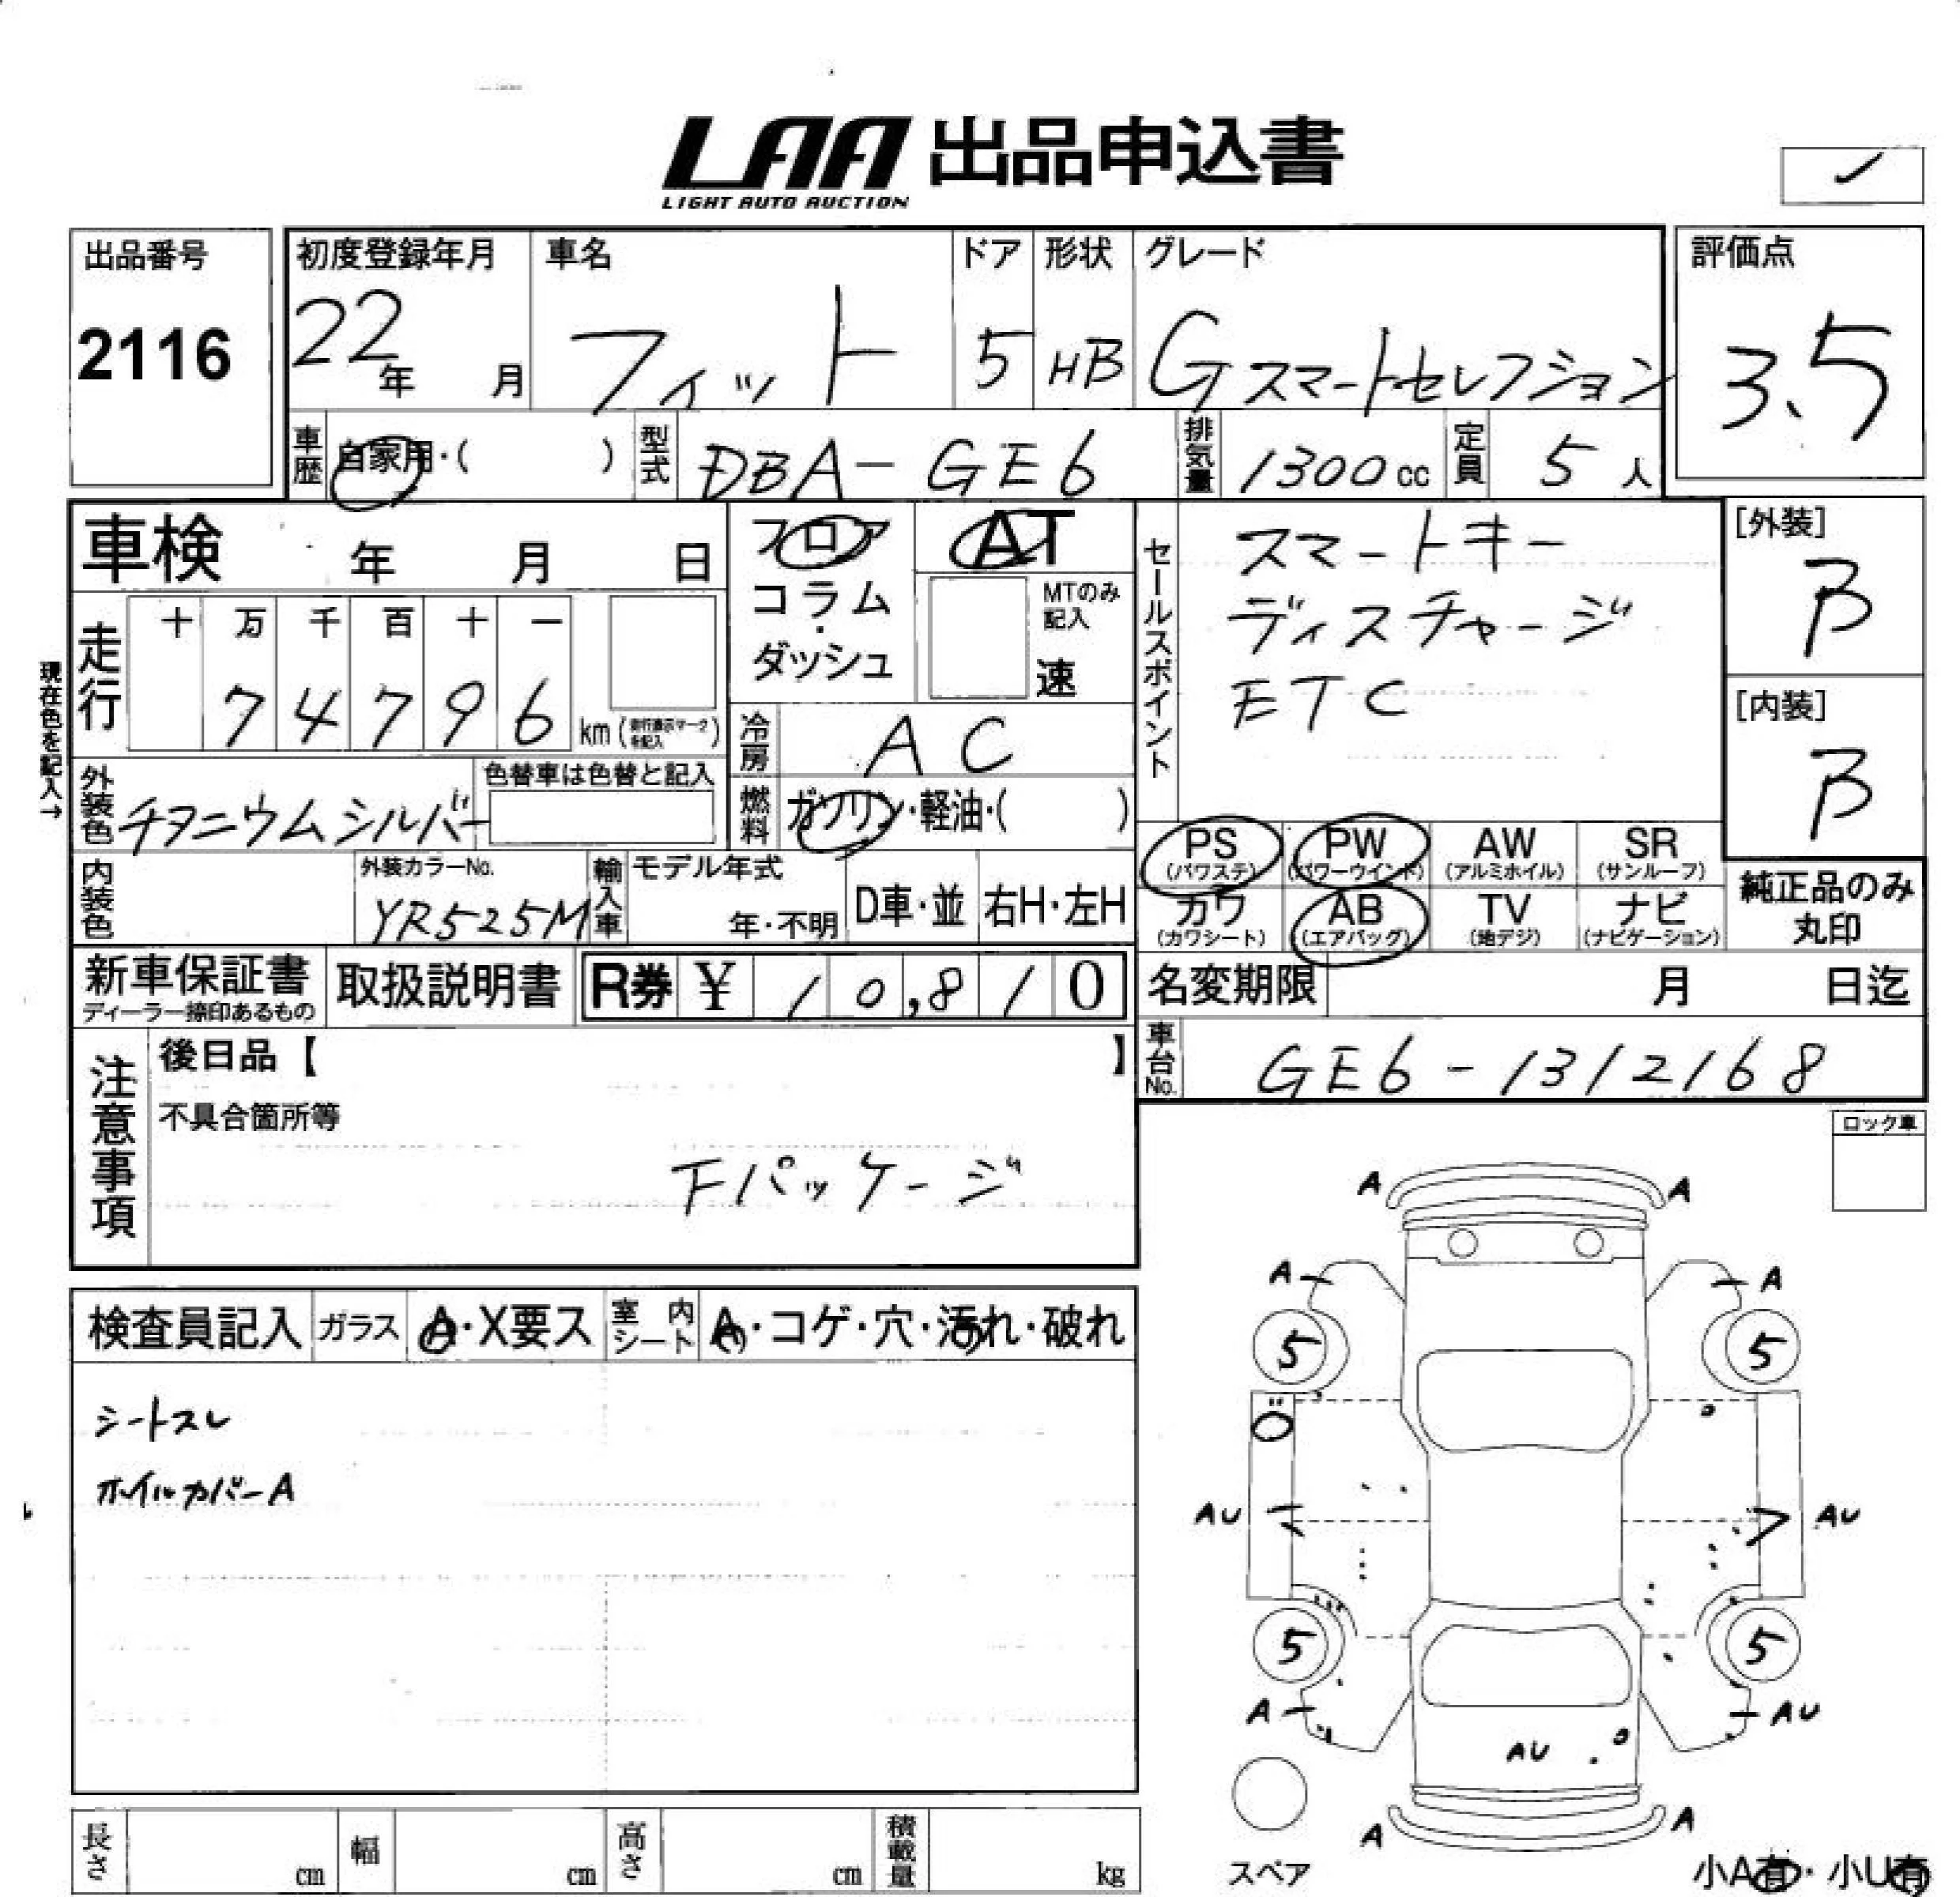 LAA 出品申込書
LIGHT AUTO AUCTION
出品番号
2116
初度登録年月
22年 月
車名
フィット
ドア
5
形状
HB
グレード
Gスマートセレクション
評価点
3.5
車歴 自家用・( )
型式 DBA-GE6
排気量 1300cc
定員 5人
車検 年 月 日
フロア
コラム・ダッシュ
AT
MTのみ記入
速
セールスポイント
スマートキー
ディスチャージ
ETC
[外装]
B
[内装]
B
現在色を記入→
走行
十 万 千 百 十 一
7 4 7 9 6 km
冷房 AC
燃料 ガソリン・軽油・( )
外装色 チタニウムシルバー
色替車は色替と記入
内装色
外装カラーNo.
YR525M
輸入車
モデル年式
年・不明
D車・並
右H・左H
PS (パワステ)
PW (パワーウインド)
AW (アルミホイル)
SR (サンルーフ)
カワ (カワシート)
AB (エアバッグ)
TV (地デジ)
ナビ (ナビゲーション)
純正品のみ
丸印
新車保証書
ディーラー捺印あるもの
取扱説明書
R券 ¥ 10,810
名変期限 月 日迄
車台No. GE6-1312168
注意事項
後日品【 】
不具合箇所等
Fパッケージ
ロック車
検査員記入
ガラス A・X要ス
室内シート A・コゲ・穴・汚れ・破れ
シートスレ
ホイルカバーA
A A
A A
5 5
AU AU
5 5
A AU
AU
A A
スペア
小A有・小U有
長さ cm
幅 cm
高さ cm
積載量 kg